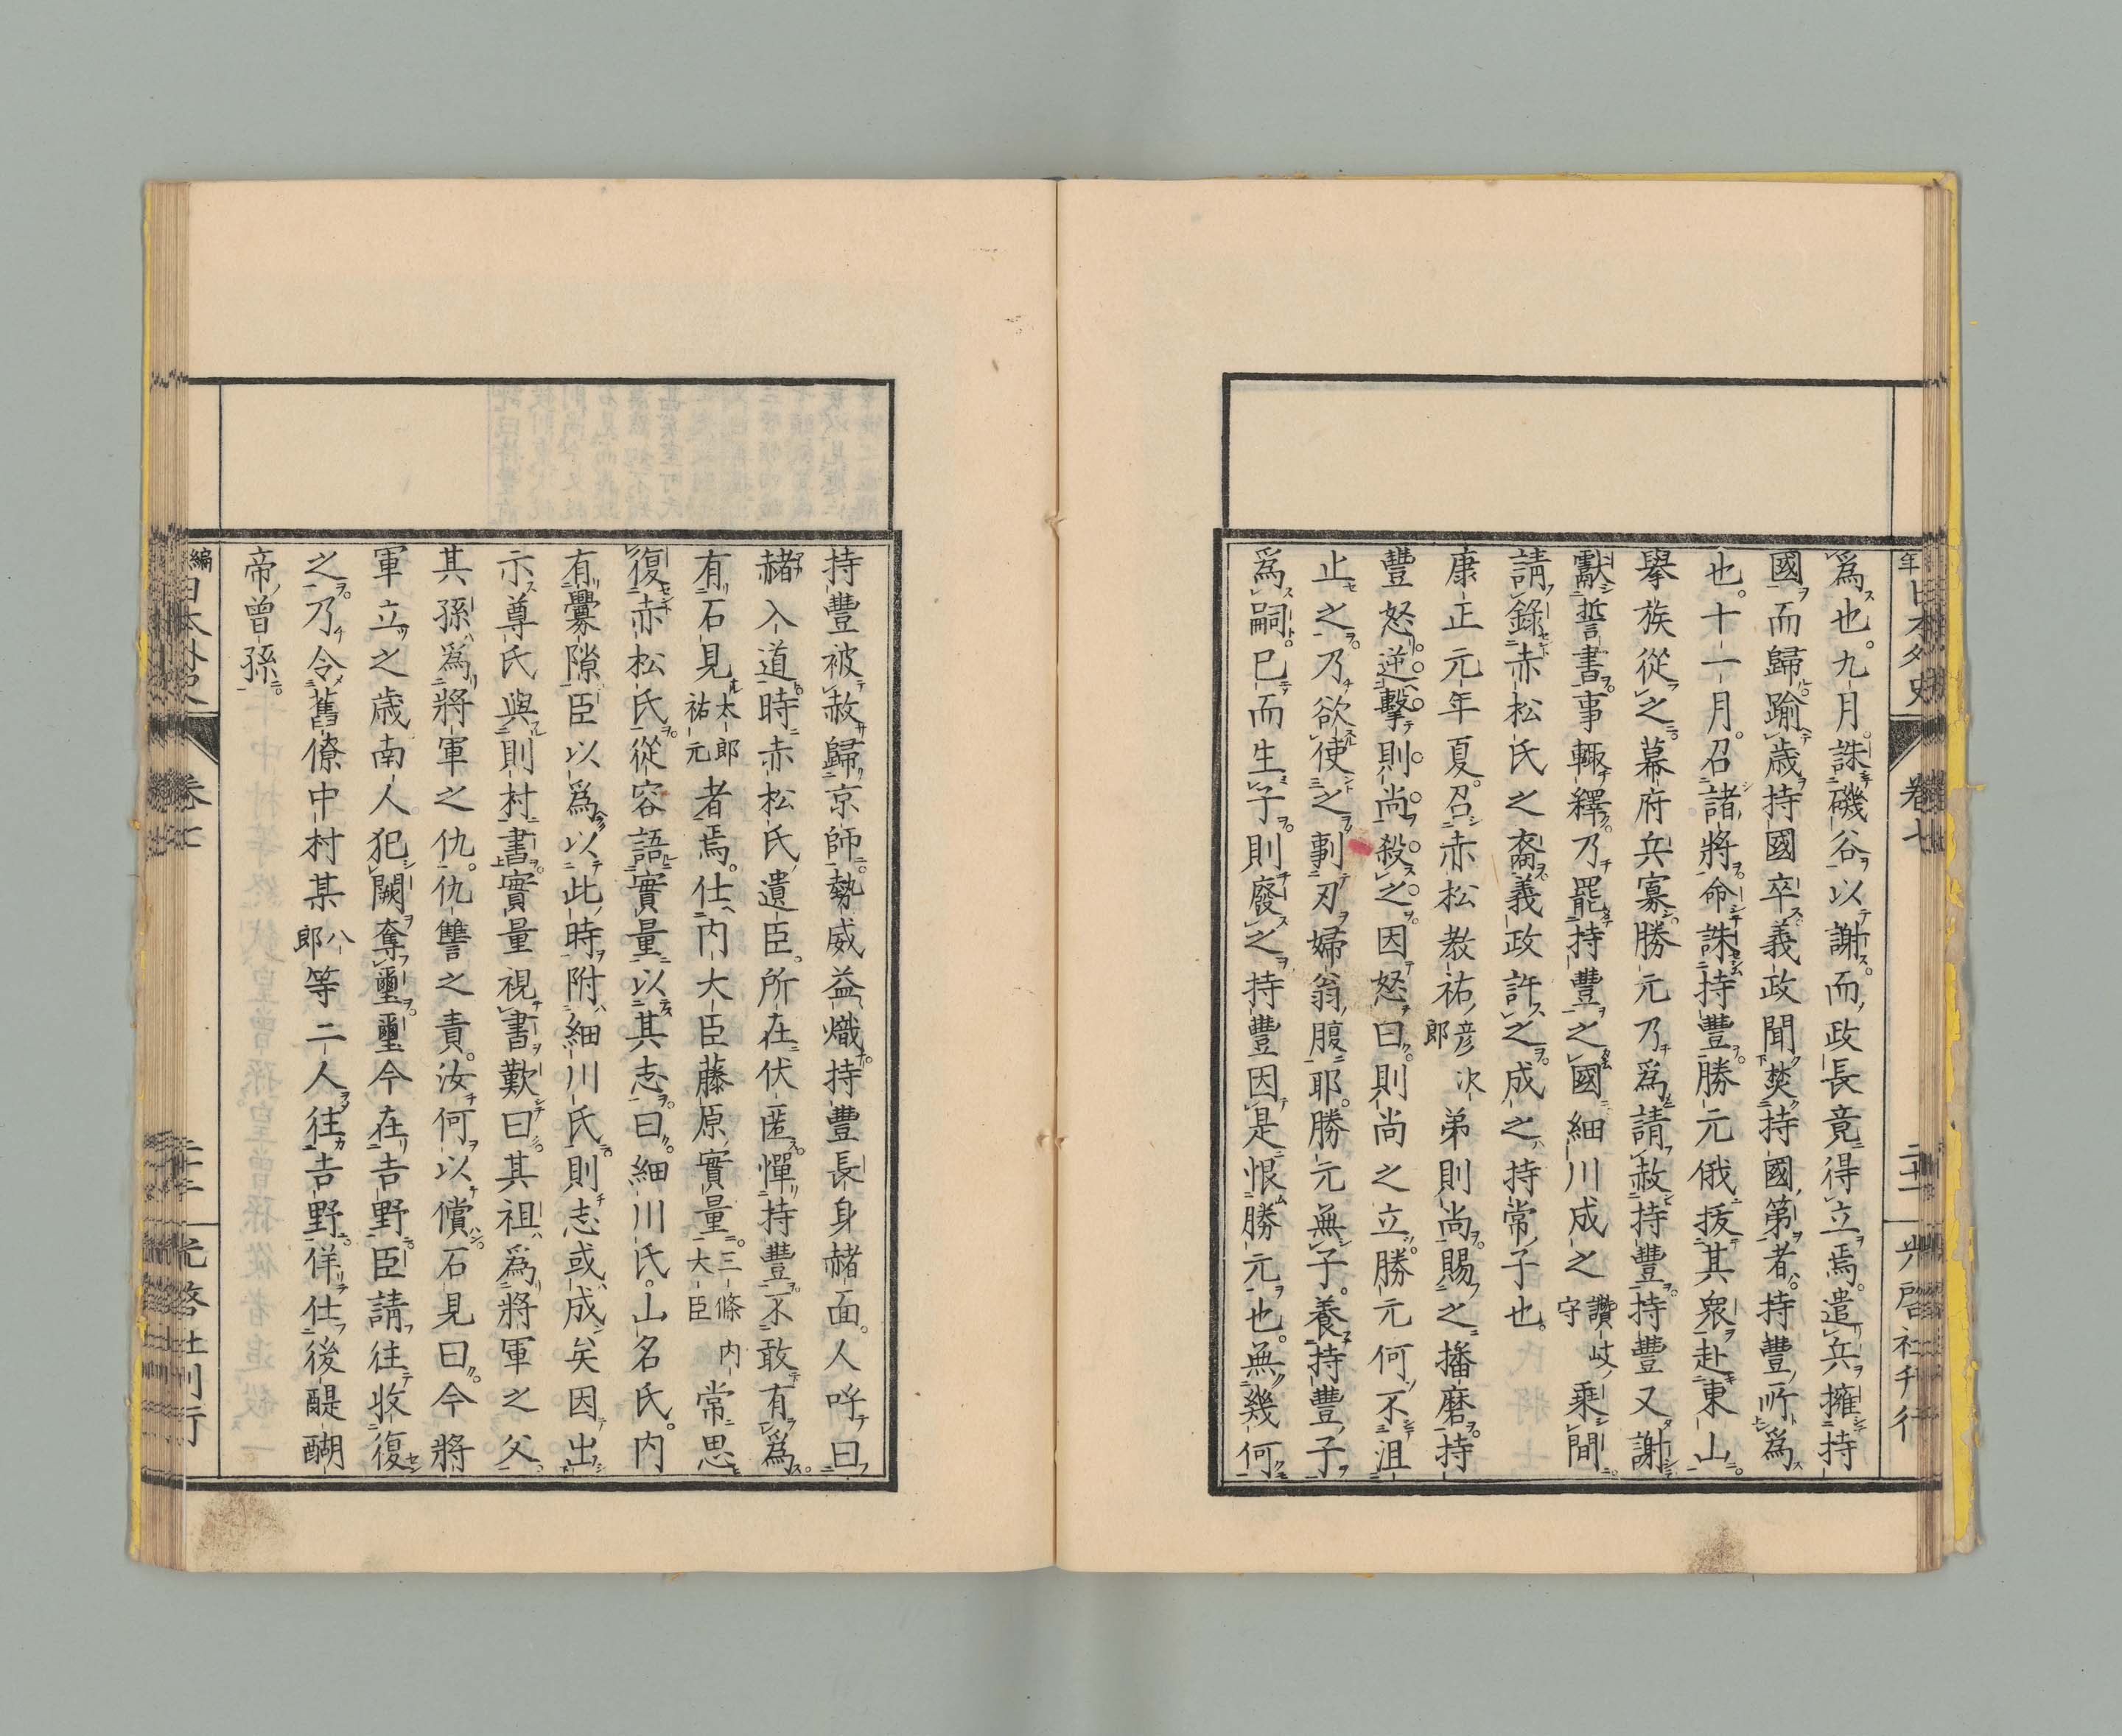 年日本外史　卷七　二十一　光啓社刊行
爲也。九月。誅磯谷以謝。而政長竟得立焉。遣兵擁持
國而歸。踰歲持國卒。義政聞焚持國第者。持豐所爲
也。十一月。召諸將。命誅持豐。勝元俄援其衆赴東山。
擧族從之。幕府兵寡。勝元乃爲請赦持豐。持豐又謝
獻誓書。事輒釋。乃罷持豐之國。細川成之讚岐守乘間
請錄赤松氏之裔。義政許之。成之持常子也。
康正元年夏。召赤松教祐彦次郎弟則尚。賜之播磨。持
豐怒。逆擊則尚殺之。因怒曰。則尚之立。勝元何不沮
止之。乃欲使之剚刃婦翁腹耶。勝元無子。養持豐子
爲嗣。已而生子。則廢之。持豐因是恨勝元也。無幾何
持豐被赦歸京師。勢威益熾。持豐長身赭面。人呼曰
赭入道。時赤松氏遺臣。所在伏匿。憚持豐。不敢有爲。
有石見太郎祐元者焉。仕內大臣藤原實量。三條內大臣常思
復赤松氏。從容語實量以其志。曰。細川氏。山名氏。內
有釁隙。臣以爲以此時附細川氏。則志或成矣。因出
示尊氏與則村書。實量視書歎曰。其祖爲將軍之父。
其孫爲將軍之仇。仇讐之責。汝何以償。石見曰。今將
軍立之歲。南人犯闕奪璽。璽今在吉野。臣請往收復
之。乃令舊僚中村某八郎等二人往吉野。佯仕後醍醐
帝曾孫。
編日本外史　卷七　光啓社刊行